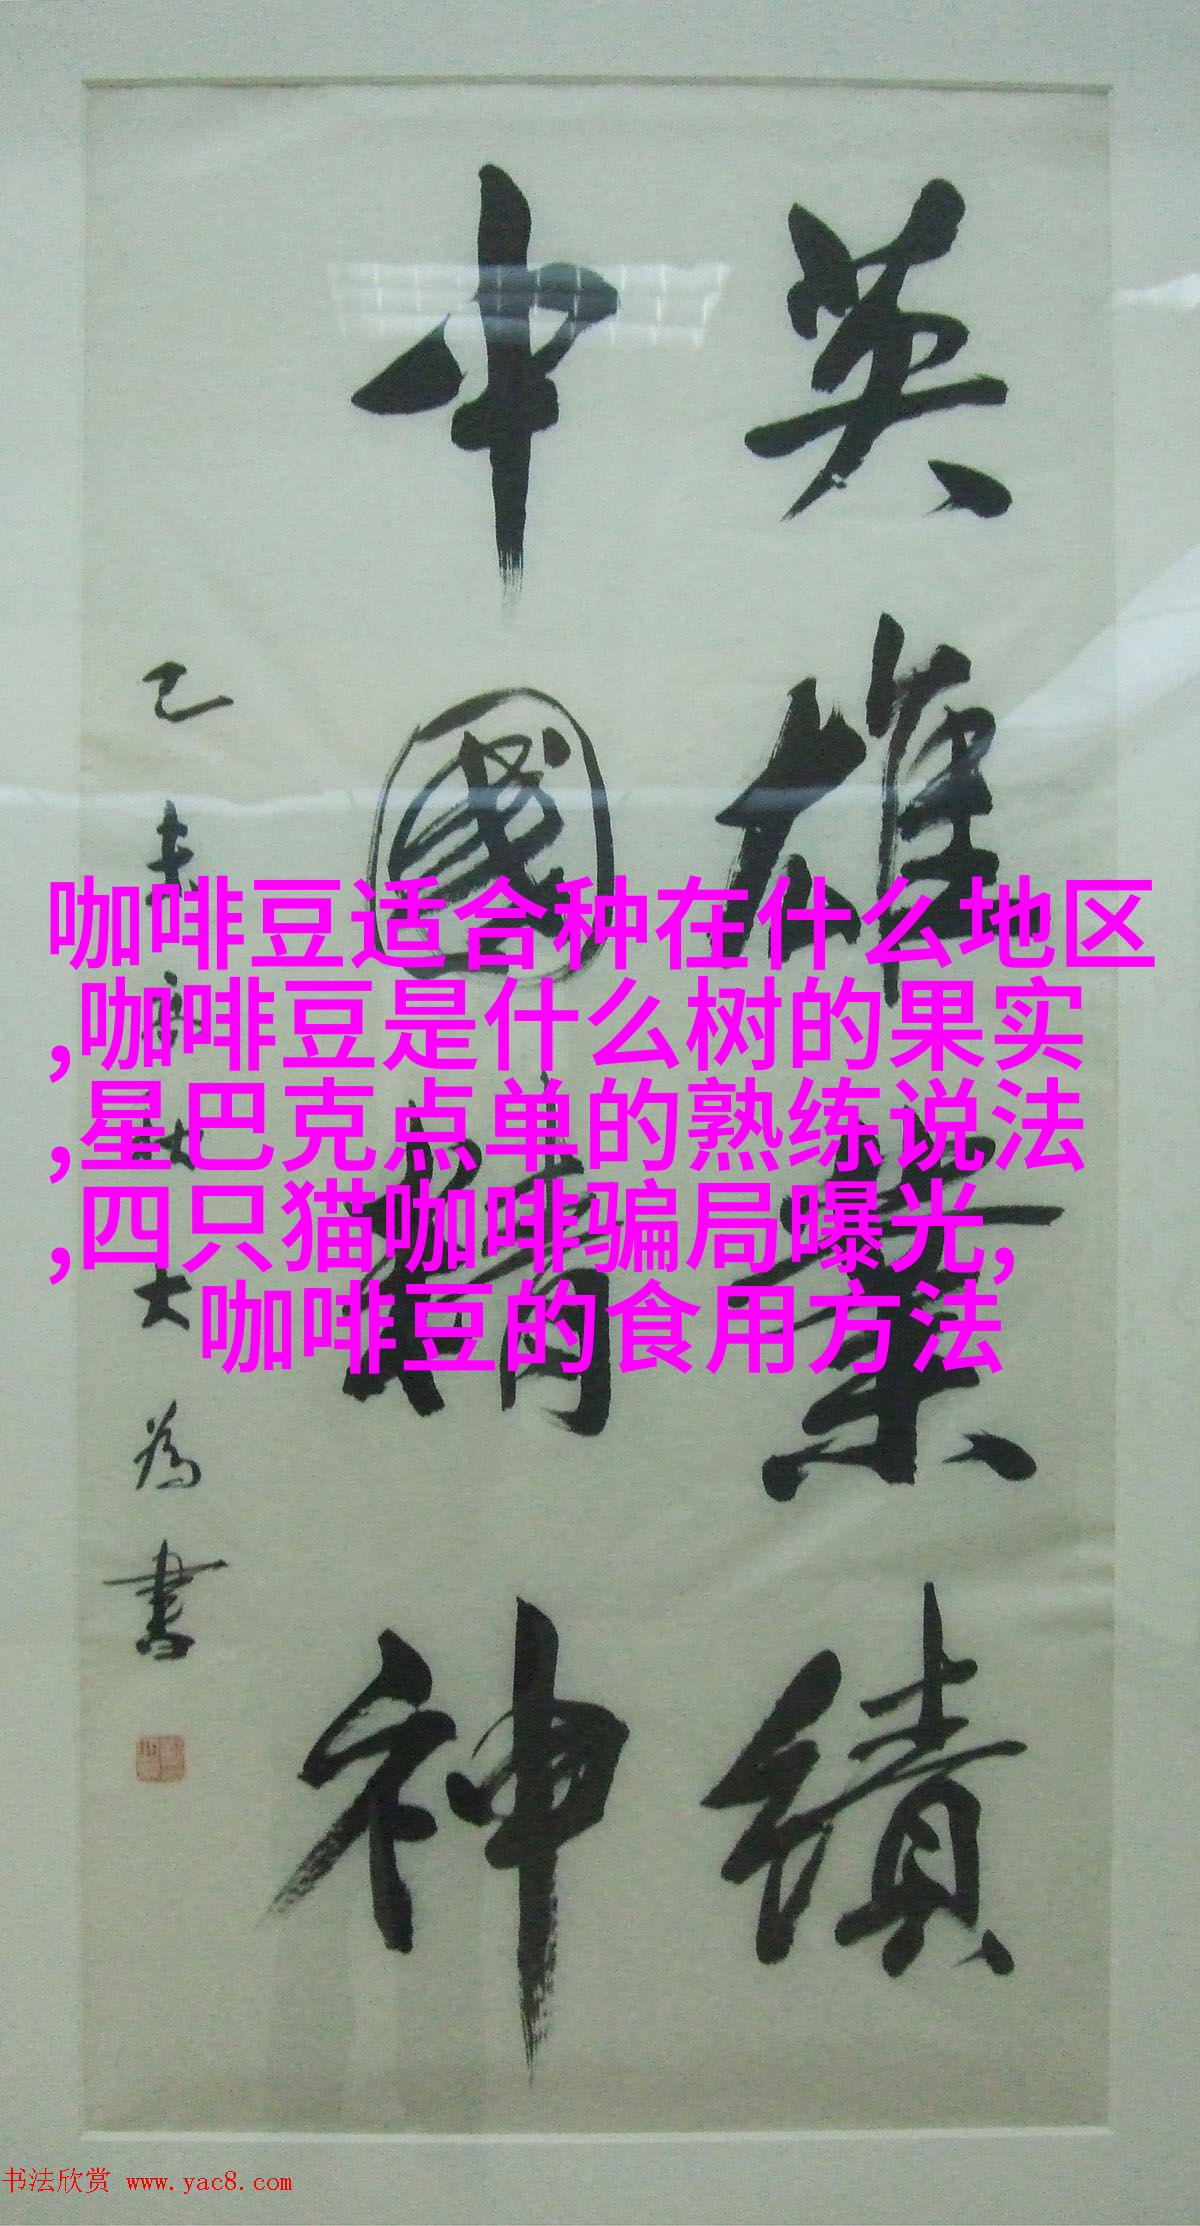 英雄業績
中國精神
乙未
大為書
咖啡豆适合种在什么地区
,咖啡豆是什么树的果实
,星巴克点单的熟练说法
,四只猫咖啡骗局曝光,
咖啡豆的食用方法
书法欣赏 www.yac8.com